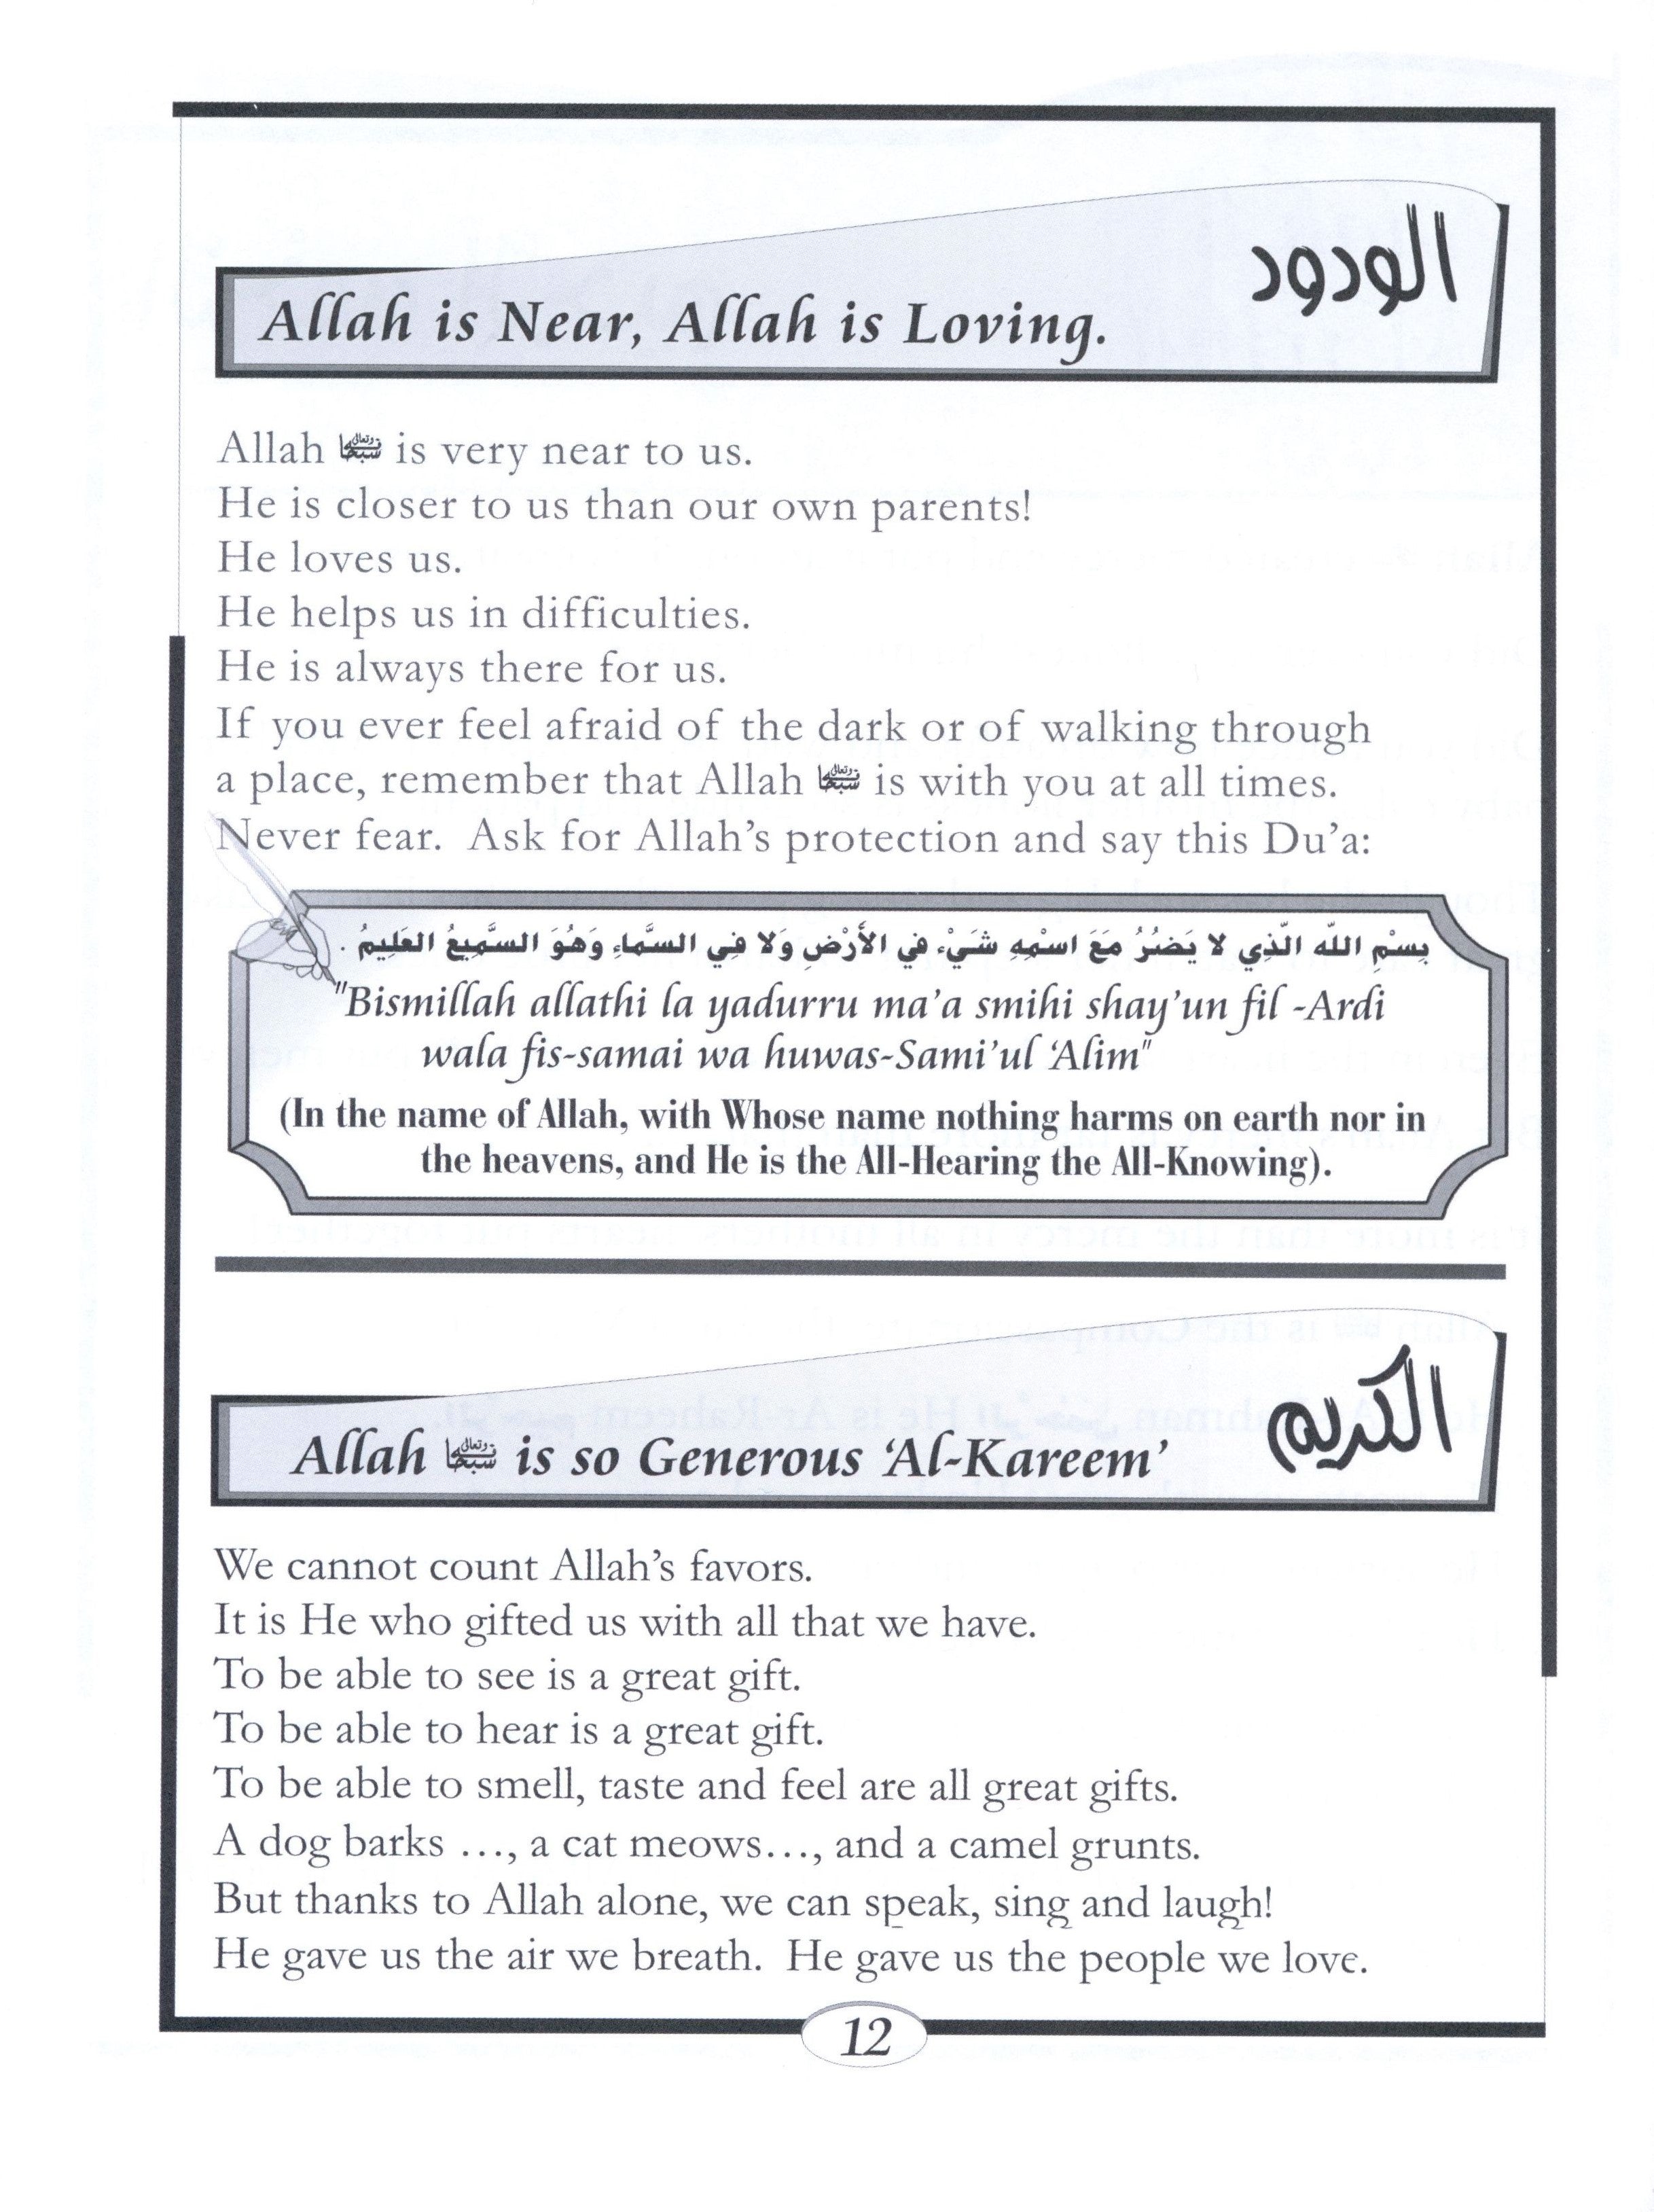 الودود
Allah is Near, Allah is Loving.
Allah سبحانه وتعالى is very near to us.
He is closer to us than our own parents!
He loves us.
He helps us in difficulties.
He is always there for us.
If you ever feel afraid of the dark or of walking through
a place, remember that Allah سبحانه وتعالى is with you at all times.
Never fear. Ask for Allah’s protection and say this Du’a:
بِسْمِ اللَّه الَّذِي لا يَضُرُ مَعَ اسْمِهِ شَيْءٌ فِي الأَرْضِ وَلا فِي السَّمَاءِ وَهُوَ السَّمِيعُ العَلِيمُ .
"Bismillah allathi la yadurru ma’a smihi shay’un fil -Ardi
wala fis-samai wa huwas-Sami’ul ‘Alim"
(In the name of Allah, with Whose name nothing harms on earth nor in
the heavens, and He is the All-Hearing the All-Knowing).
الكريم
Allah سبحانه وتعالى is so Generous ‘Al-Kareem’
We cannot count Allah’s favors.
It is He who gifted us with all that we have.
To be able to see is a great gift.
To be able to hear is a great gift.
To be able to smell, taste and feel are all great gifts.
A dog barks …, a cat meows…, and a camel grunts.
But thanks to Allah alone, we can speak, sing and laugh!
He gave us the air we breath. He gave us the people we love.
12